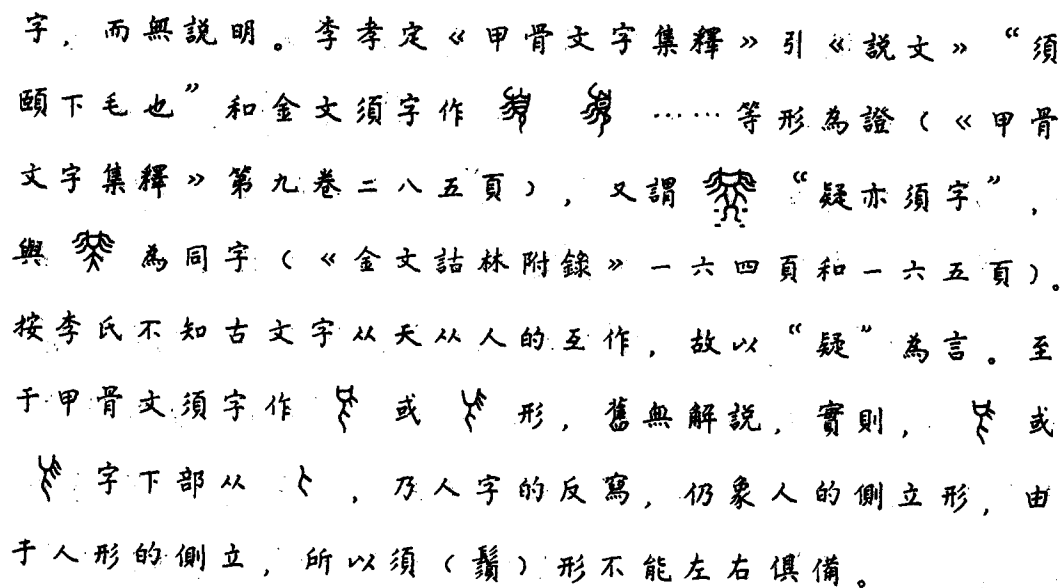 字，而無説明。李孝定《甲骨文字集釋》引《説文》“須
頤下毛也”和金文須字作……等形為證（《甲骨
文字集釋》第九卷二八五頁），又謂“疑亦須字”，
與為同字（《金文詁林附錄》一六四頁和一六五頁）。
按李氏不知古文字从天从人的互作，故以“疑”為言。至
于甲骨文須字作或形，舊無解説，實則，或
字下部从，乃人字的反寫，仍象人的側立形，由
于人形的側立，所以須（鬚）形不能左右俱備。